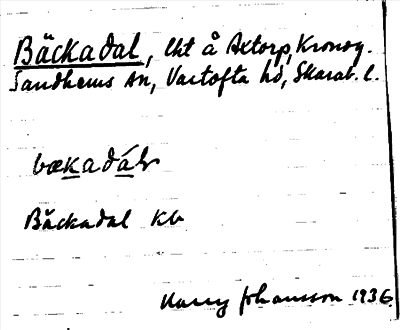 Bäckadal, lht å Axtorp, Kronog.
Sandhems sn, Vartofta hd, Skarab. l.
Bäckadal Kb
Harry Johansson 1936.